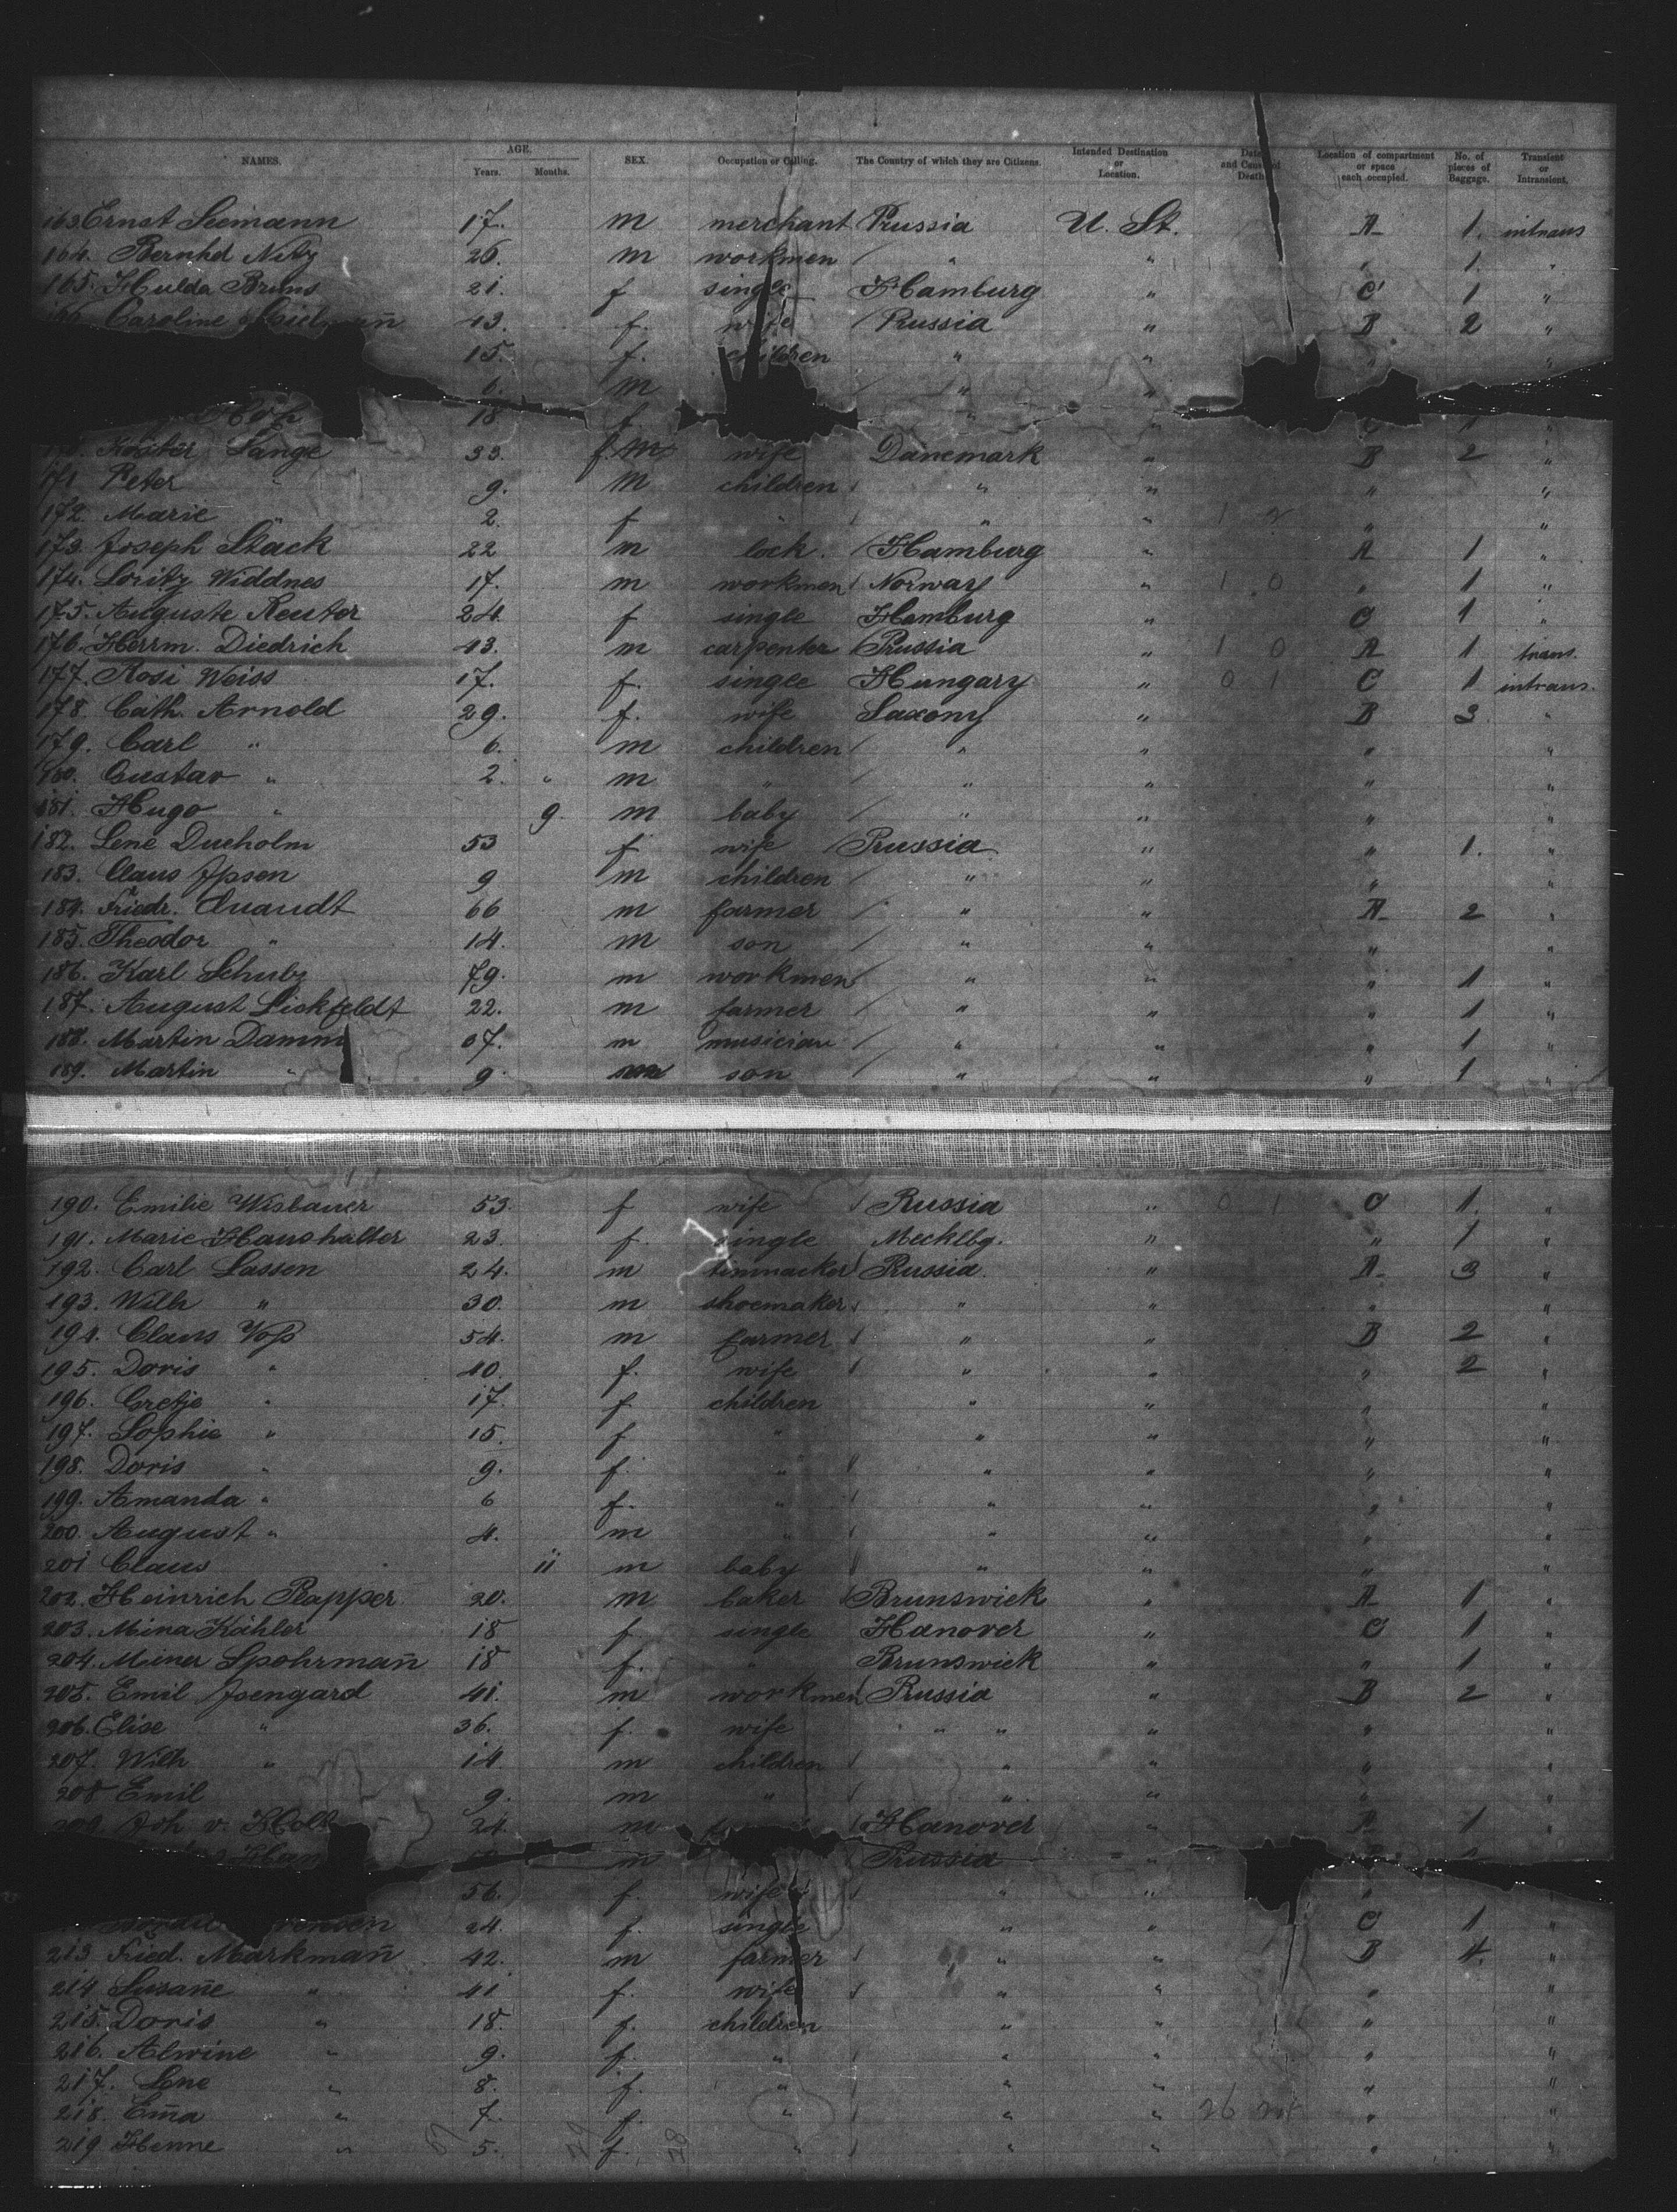 NAMES. AGE. SEX. Occupation or Calling. The Country of which they are Citizens. Intended Destination or Location. Date and Cause of Death Location of compartment or space each occupied. No. of pieces of Baggage. Transient or Intransient.
Years. Months.
163 Ernst Seemann 17. m merchant Prussia U. St. A 1. intrans
164. Bernhd Nitz 26. m workmen " " " 1. "
165. Hulda Bruns 21. f single Hamburg " C 1 "
Caroline 43. f. wife Prussia " B 2 "
15. f. children " " " "
6. m " "
18 f. " " 1 "
Lange 33. f. m wife Danemark " B 2 "
171 Peter " 9. m children " " " "
172. Marie " 2. f " " " 1 2 " "
173. Joseph Stack 22 m lock. Hamburg " A 1 "
174. Loritz Widdnes 17. m workmen Norway " 1 0 " 1 "
175. Auguste Reuter 24. f single Hamburg " C 1 "
176. Herrm. Diedrich 43. m carpenter Prussia " 1 0 A 1 trans.
177. Rosi Weiss 17. f. single Hungary " 0 1 C 1 intrans.
178. Cath. Arnold 29. f. wife Saxony " B 3 "
179. Carl " 6. m children " " " "
180. Gustav " 2. " m " " " " "
181. Hugo " 9. m baby " " " "
182. Lene Dueholm 53 f wife Prussia " " 1. "
183. Claus Ipsen 9 m children " " " "
184. Friedr. Quandt 66 m farmer " " A 2 "
185. Theodor " 14. m son " " " "
186. Karl Schulz 79. m workmen " " " 1 "
187. August Lickfeldt 22. m farmer " " " 1 "
188. Martin Damm 37. m musician " " " 1 "
189. Martin " 9 son " " " 1 "
190. Emilie Wisbauer 53. f wife Russia " 0 1 C 1. "
191. Marie Haushalter 23. f. single Mecklbg. " " 1 "
192. Carl Lassen 24. m Prussia " A 3 "
193. Wilh " 30. m shoemaker " " " "
194. Claus Voß 54. m farmer " " B 2 "
195. Doris " 40. f. wife " " " 2 "
196. Gretje " 17. f children " " " "
197. Sophie " 15. f " " " " "
198. Doris " 9. f. " " " " "
199. Amanda " 6 f. " " " " "
200. August " 4. m " " " " "
201 Claus 11 m baby " " " "
202. Heinrich Rapper 20. m baker Brunswick " A 1 "
203. Mina Kähler 18 f. single Hanover " C 1 "
204. Mina Spohrman̄ 18 f. " Brunswick " " 1 "
205. Emil Isengard 41. m workmen Prussia " B 2 "
206. Elise " 36. f. wife " " " " "
207. Wilh " 14 m children " " " "
208 Emil 9. m " " " " "
209. Joh v. Holt 24. m Hanover " A 1 "
m Prussia "
56. f. wife " " "
24. f. single " " C 1 "
213 Fried. Markman̄ 42. m farmer " " B 4. "
214 Susan̄e " 41 f. wife " " " "
215. Doris " 18. f. children " " " "
216. Alwine " 9. f. " " " " "
217. Lene " 8. f. " " " " "
218. Em̄a " 7. f. " " " 26 " "
219 Henne " 5. f. " " " " "